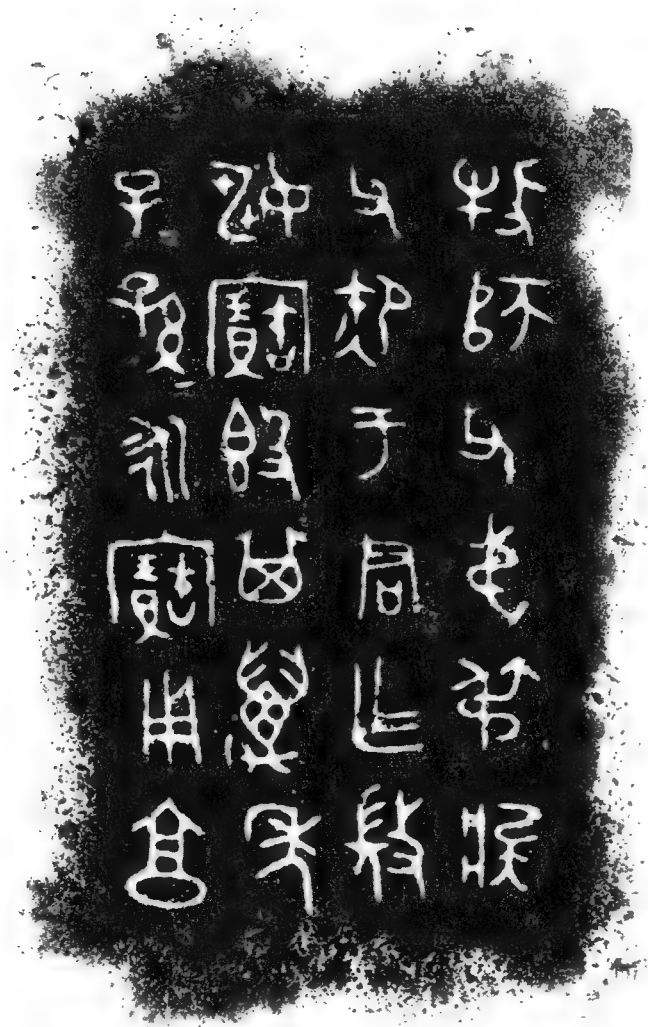 牧師父弟叔㾓
父御于君乍𢼸
姚寶𣪘其萬年
子=孫=永寶用享